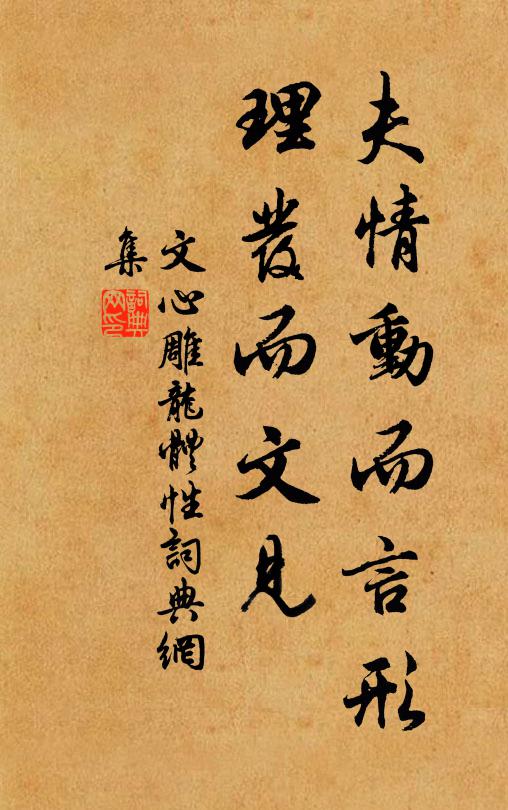 夫情動而言形
理發而文見
文心雕龍體性詞典網
集
詞典網印